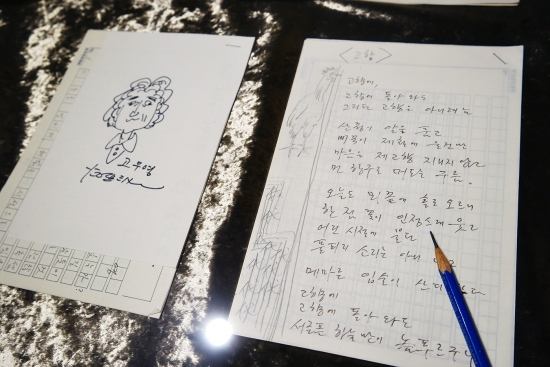 고우영
<고향>
고향에,
고향에 돌아 와도
그리던 고향은 아니러뇨
산꿩이 알을 품고
뻐꾹이 제철에 울건만
마음은 제고향 지니지 않고
먼 항구로 떠도는 구름.
오늘도 뫼끝에 홀로 오르니
한 점 꽃이 인정스레 웃고
어린 시절에 불던
풀피리 소리는 아니
메마른 입술이 쓰디
고향에
고향에 돌아 와도
서글픈 하늘만이 높푸르구나